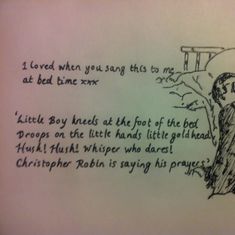 I loved when you sang this to me
at bed time xxx
'Little Boy kneels at the foot of the bed
Droops on the little hands little gold head
Hush! Hush! Whisper who dares!
Christopher Robin is saying his prayers'